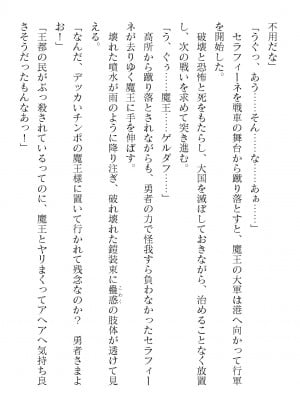 不用だな」
「うぐっ、あう……そん……な……あぁ……」
セラフィーネを戦車の舞台から蹴り落とすと、魔王の大軍は港へ向かって行軍
を開始した。
破壊と恐怖と死をもたらし、大国を滅ぼしておきながら、治めることなく放置
し、次の戦いを求めて突き進む。
「う、ぐぅ……魔王……ゲルダフ……」
高所から蹴り落とされながらも、勇者の力で怪我すら負わなかったセラフィー
ネが去りゆく魔王に手を伸ばす。
壊れた噴水が雨のように降り注ぎ、破れ壊れた鎧装束に蠱惑の肢体が透けて見
こわく
える。
「なんだ、デッカいチンポの魔王様に置いて行かれて残念なのか？　勇者さまよ
お！」
「王都の民がぶっ殺されているってのに、魔王とヤリまくってアヘアヘ気持ち良
さそうだったもんなあっ！」